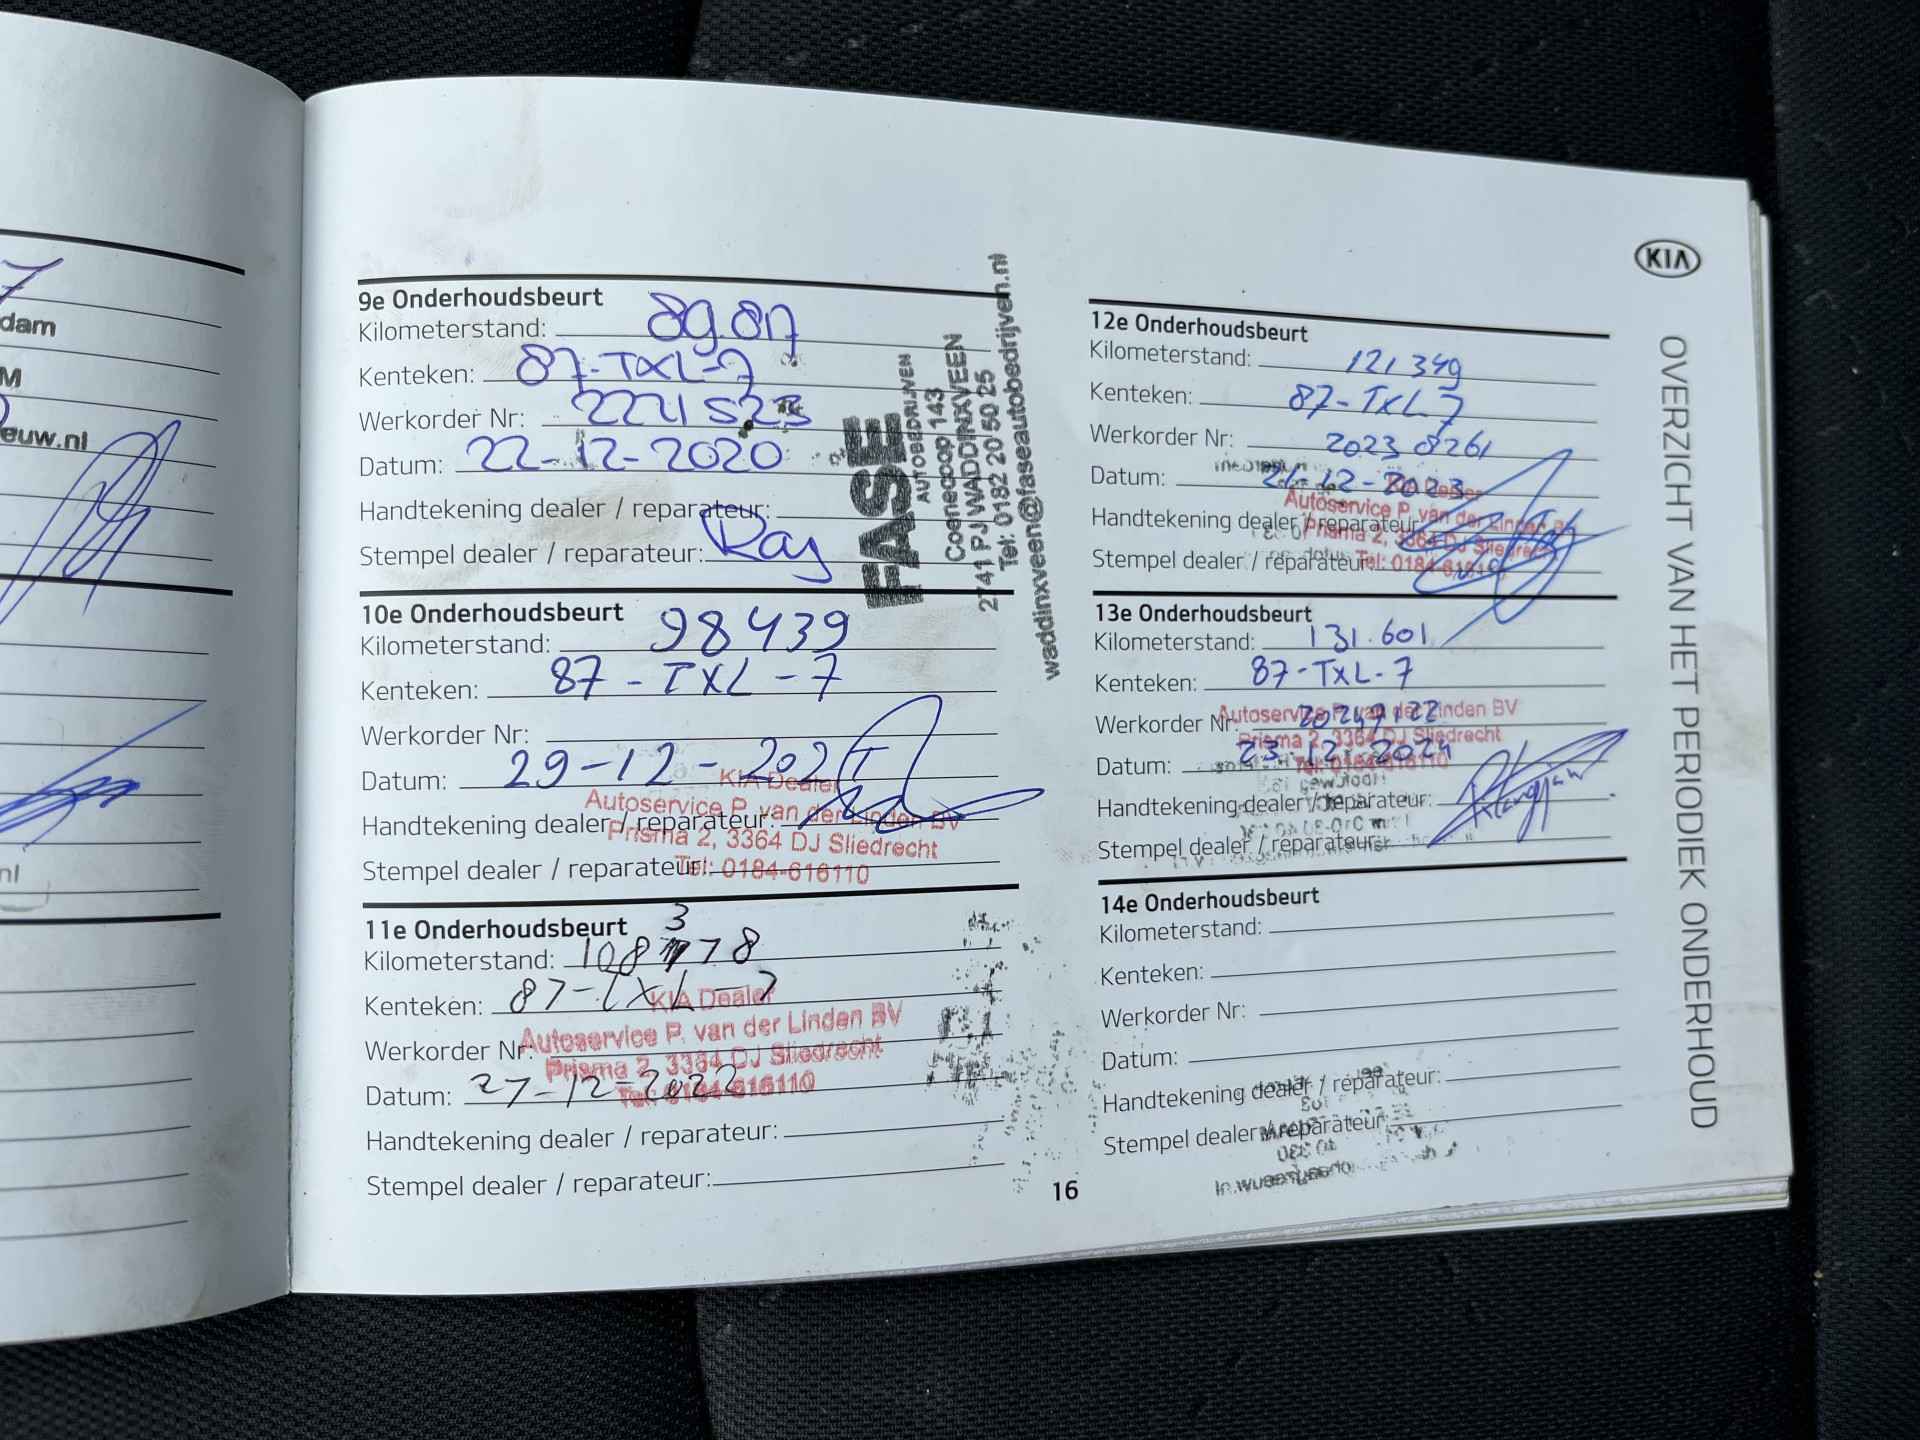 dam
M
euw.nl
nl
9e Onderhoudsbeurt
Kilometerstand: 89.817
Kenteken: 87-TXL-7
Werkorder Nr: 2221523
Datum: 22-12-2020
Handtekening dealer / reparateur:
Stempel dealer / reparateur: Ray
FASE
AUTOBEDRIJVEN
Coenecoop 143
2741 PJ WADDINXVEEN
Tel: 0182 20 50 25
waddinxveen@faseautobedrijven.nl
10e Onderhoudsbeurt
Kilometerstand: 98439
Kenteken: 87-TXL-7
Werkorder Nr:
Datum: 29-12-2021
Handtekening dealer / reparateur:
Stempel dealer / reparateur:
KIA Dealer
Autoservice P. van der Linden BV
Prisma 2, 3364 DJ Sliedrecht
Tel: 0184-616110
11e Onderhoudsbeurt
3
Kilometerstand: 108778
Kenteken: 87-TXL-7
Werkorder Nr:
Datum: 27-12-2022
Handtekening dealer / reparateur:
Stempel dealer / reparateur:
KIA Dealer
Autoservice P. van der Linden BV
Prisma 2, 3364 DJ Sliedrecht
Tel: 0184-616110
16
KIA
12e Onderhoudsbeurt
Kilometerstand: 121349
Kenteken: 87-TXL 7
Werkorder Nr: 20238261
Datum: 21-12-2023
Handtekening dealer / reparateur:
Stempel dealer / reparateur:
KIA Dealer
Autoservice P. van der Linden BV
Prisma 2, 3364 DJ Sliedrecht
Tel: 0184-616110
13e Onderhoudsbeurt
Kilometerstand: 131.601
Kenteken: 87-TXL-7
Werkorder Nr: 20249122
Datum: 23-12-2024
Handtekening dealer / reparateur:
Stempel dealer / reparateur:
Autoservice P. van der Linden BV
Prisma 2, 3364 DJ Sliedrecht
Tel: 0184-616110
14e Onderhoudsbeurt
Kilometerstand:
Kenteken:
Werkorder Nr:
Datum:
Handtekening dealer / reparateur:
Stempel dealer / reparateur:
OVERZICHT VAN HET PERIODIEK ONDERHOUD